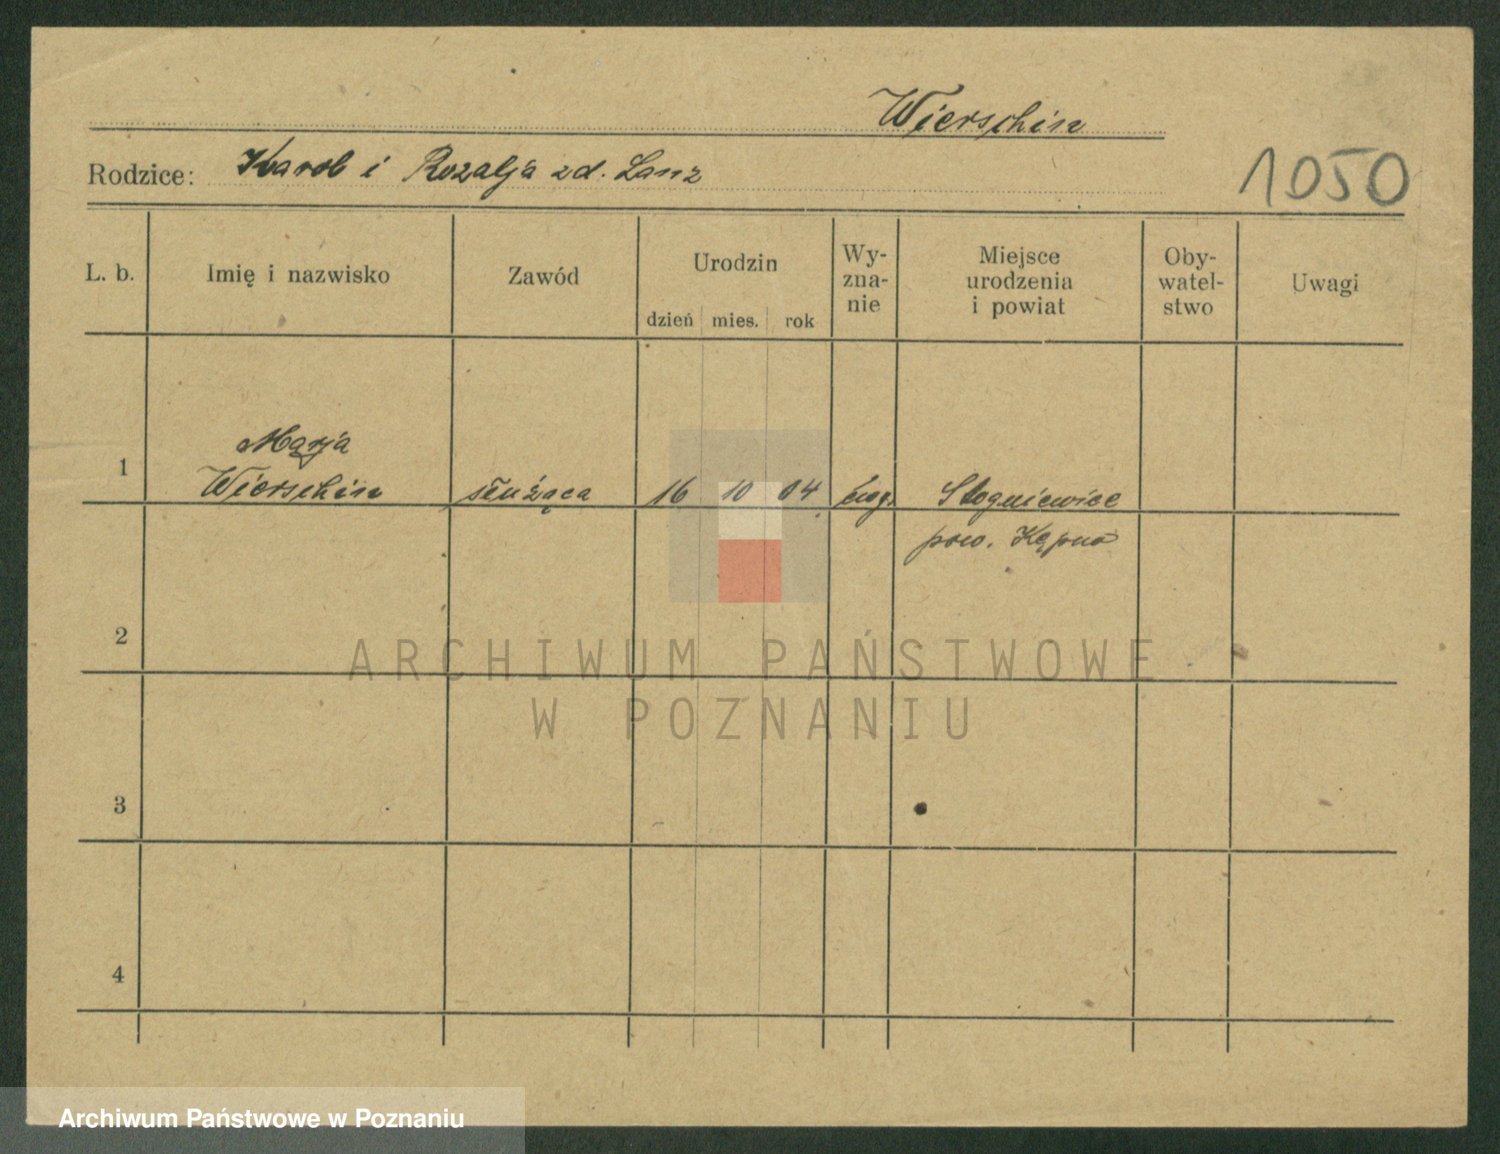 Wierschin
Rodzice: Karol i Rozalja zd. Lanz
1050
L. b.
Imię i nazwisko
Zawód
Urodzin
dzień mies. rok
Wy-
zna-
nie
Miejsce
urodzenia
i powiat
Oby-
watel-
stwo
Uwagi
1
Marja
Wierschin
służąca
16 10 04
ewg.
Stogniewice
pow. Kępno
2
3
4
ARCHIWUM PAŃSTWOWE
W POZNANIU
Archiwum Państwowe w Poznaniu